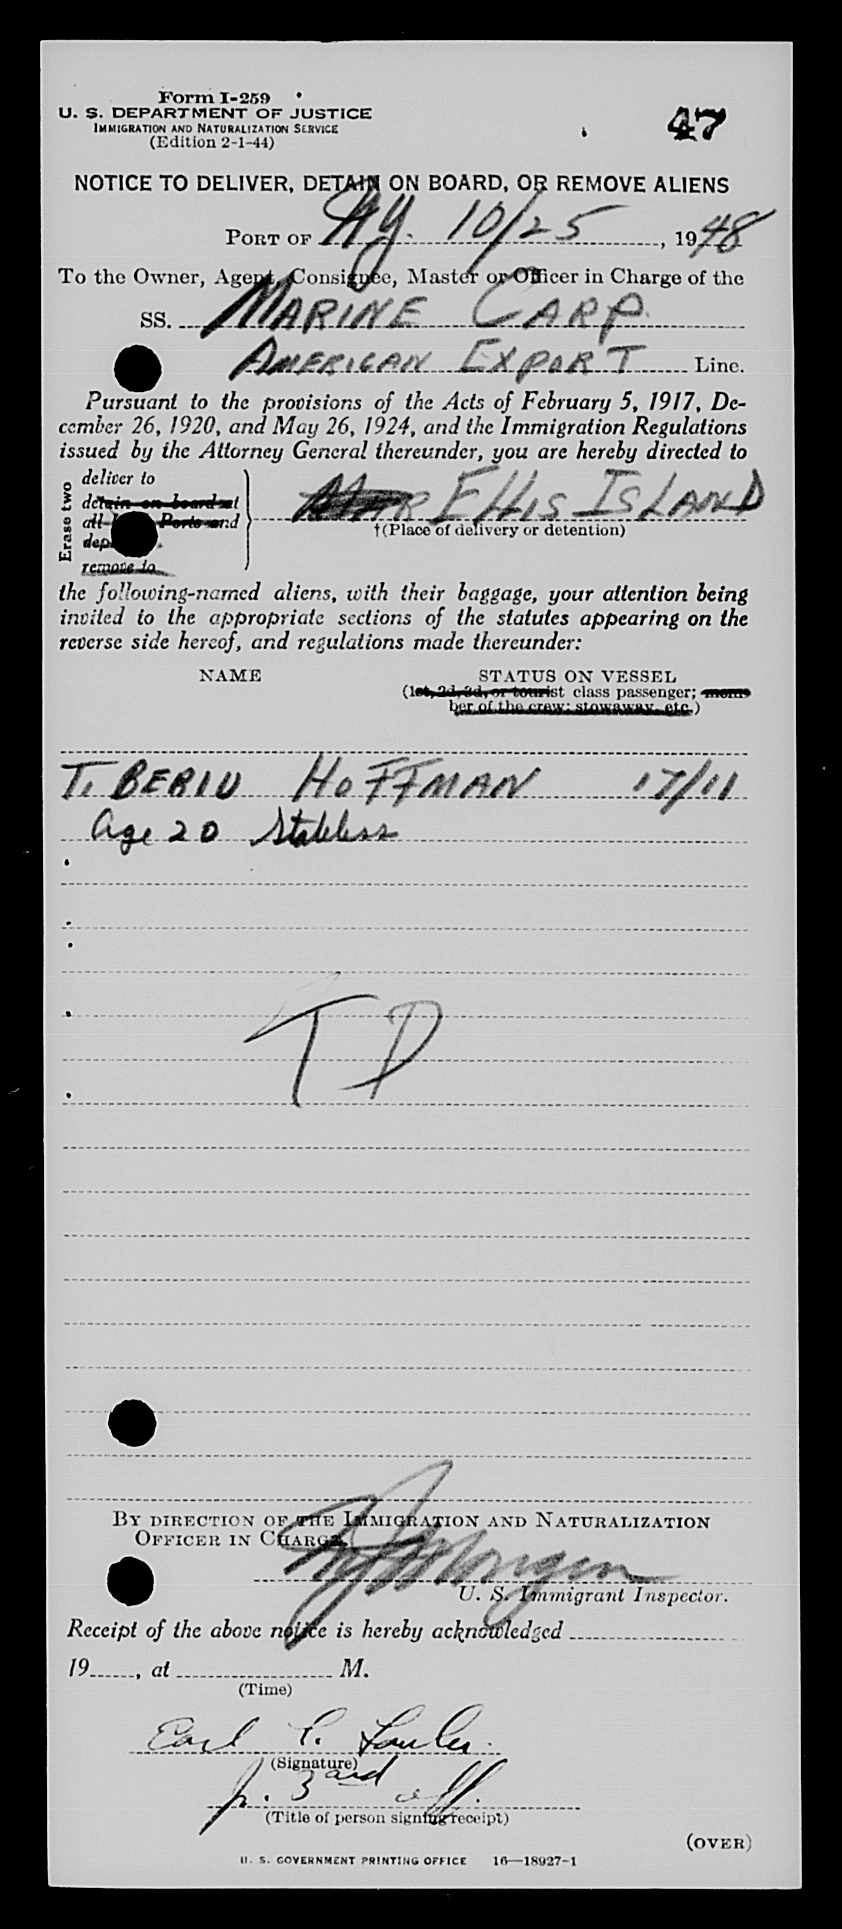 Form I-259
U. S. DEPARTMENT OF JUSTICE
IMMIGRATION AND NATURALIZATION SERVICE
(Edition 2-1-44)
47
NOTICE TO DELIVER, DETAIN ON BOARD, OR REMOVE ALIENS
PORT OF NY. 10/25, 1948
To the Owner, Agent, Consignee, Master or Officer in Charge of the
SS. MARINE CARP
AMERICAN EXPORT Line.
Pursuant to the provisions of the Acts of February 5, 1917, De-
cember 26, 1920, and May 26, 1924, and the Immigration Regulations
issued by the Attorney General thereunder, you are hereby directed to
Erase two
deliver to
detain on board at
all Ports and
remove to
ELLIS ISLAND
†(Place of delivery or detention)
the following-named aliens, with their baggage, your attention being
invited to the appropriate sections of the statutes appearing on the
reverse side hereof, and regulations made thereunder:
NAME STATUS ON VESSEL
(1st, 2d, 3d, or tourist class passenger; mem-
ber of the crew; stowaway, etc.)
TIBERIU HOFFMAN 17/11
Age 20 Stateless
TD
BY DIRECTION OF THE IMMIGRATION AND NATURALIZATION
OFFICER IN CHARGE.
U. S. Immigrant Inspector.
Receipt of the above notice is hereby acknowledged
19, at M.
(Time)
Earl
(Signature)
Jr. 3rd off.
(Title of person signing receipt)
(OVER)
U. S. GOVERNMENT PRINTING OFFICE 16—18927-1